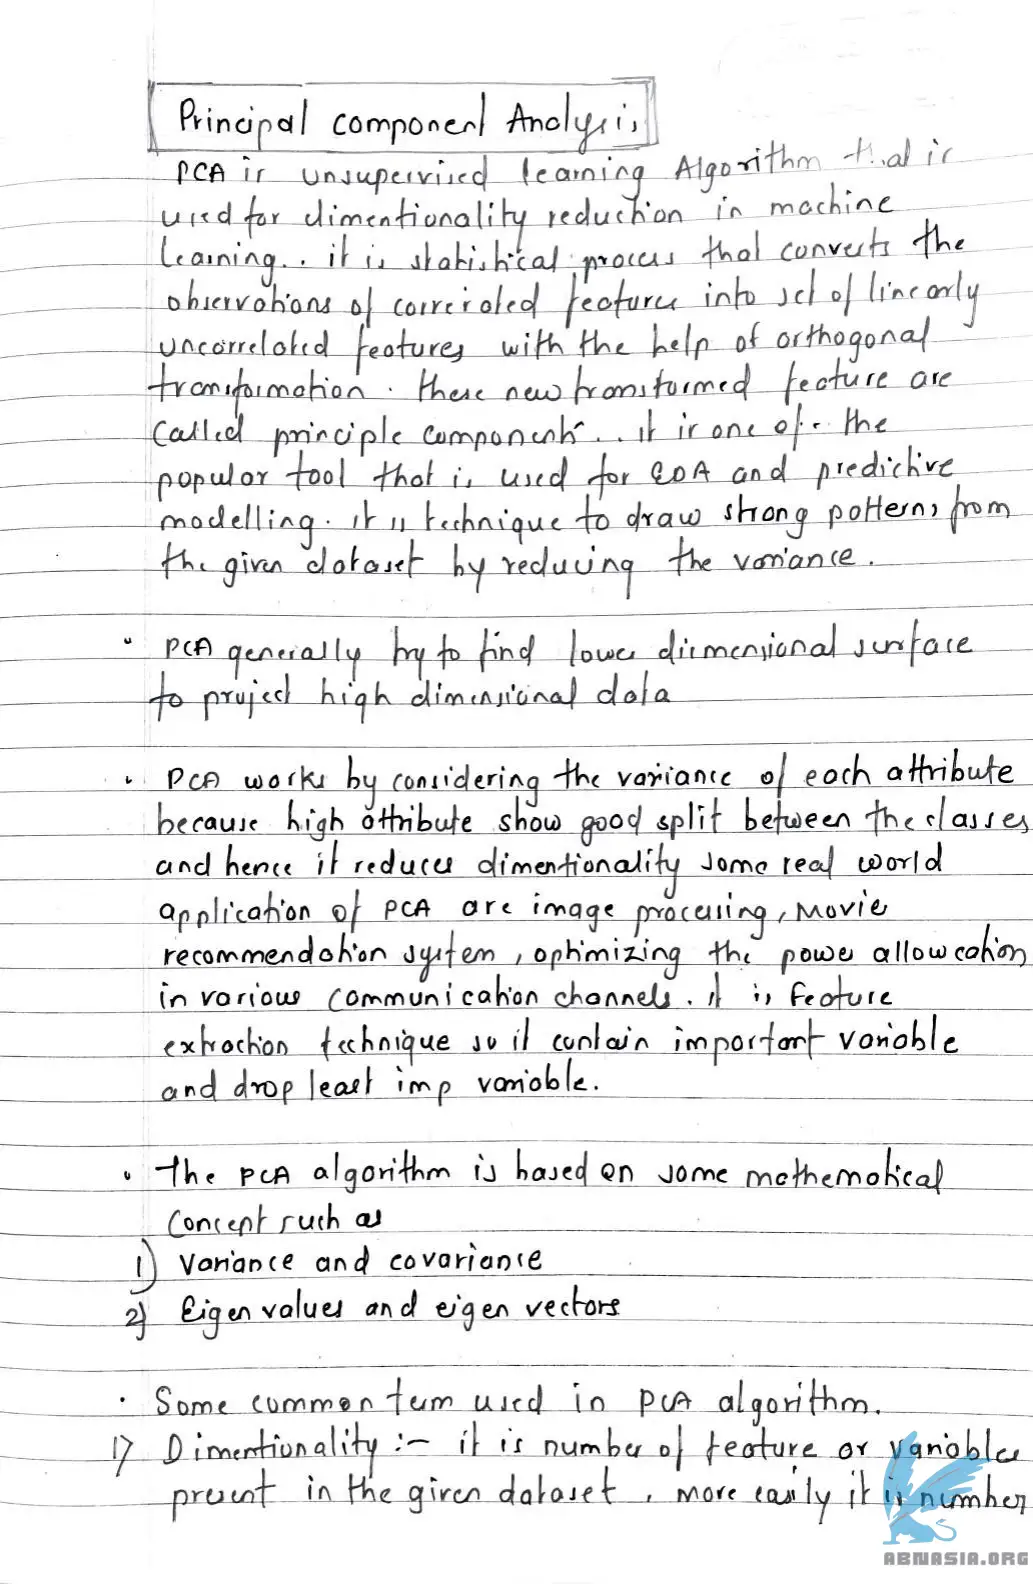 Principal component Analysis
PCA is unsupervised learning Algorithm that is
used for dimentionality reduction in machine
learning.. it is statistical process that converts the
observations of correrated features into set of linearly
uncorrelated features with the help of orthogonal
transformation. these new transformed feature are
called principle components.. it is one of the
popular tool that is used for EDA and predictive
modelling. it is technique to draw strong patterns from
the given dataset by reducing the variance.
• PCA generally try to find lower diimensional surface
to project high dimensional data
• PCA works by considering the variance of each attribute
because high attribute show good split between the classes
and hence it reduces dimentionality some real world
application of PCA are image processing, Movie
recommendation system, ophimizing the power allowcation
in various communication channels. it is feature
extraction technique so it contain important variable
and drop least imp variable.
• The PCA algorithm is based on some mathematical
concept such as
1) Variance and covariance
2) Eigen values and eigen vectors
• Some common term used in PCA algorithm.
1) Dimentionality :- it is number of feature or variables
present in the given dataset. more easily it is number
ABNASIA.ORG